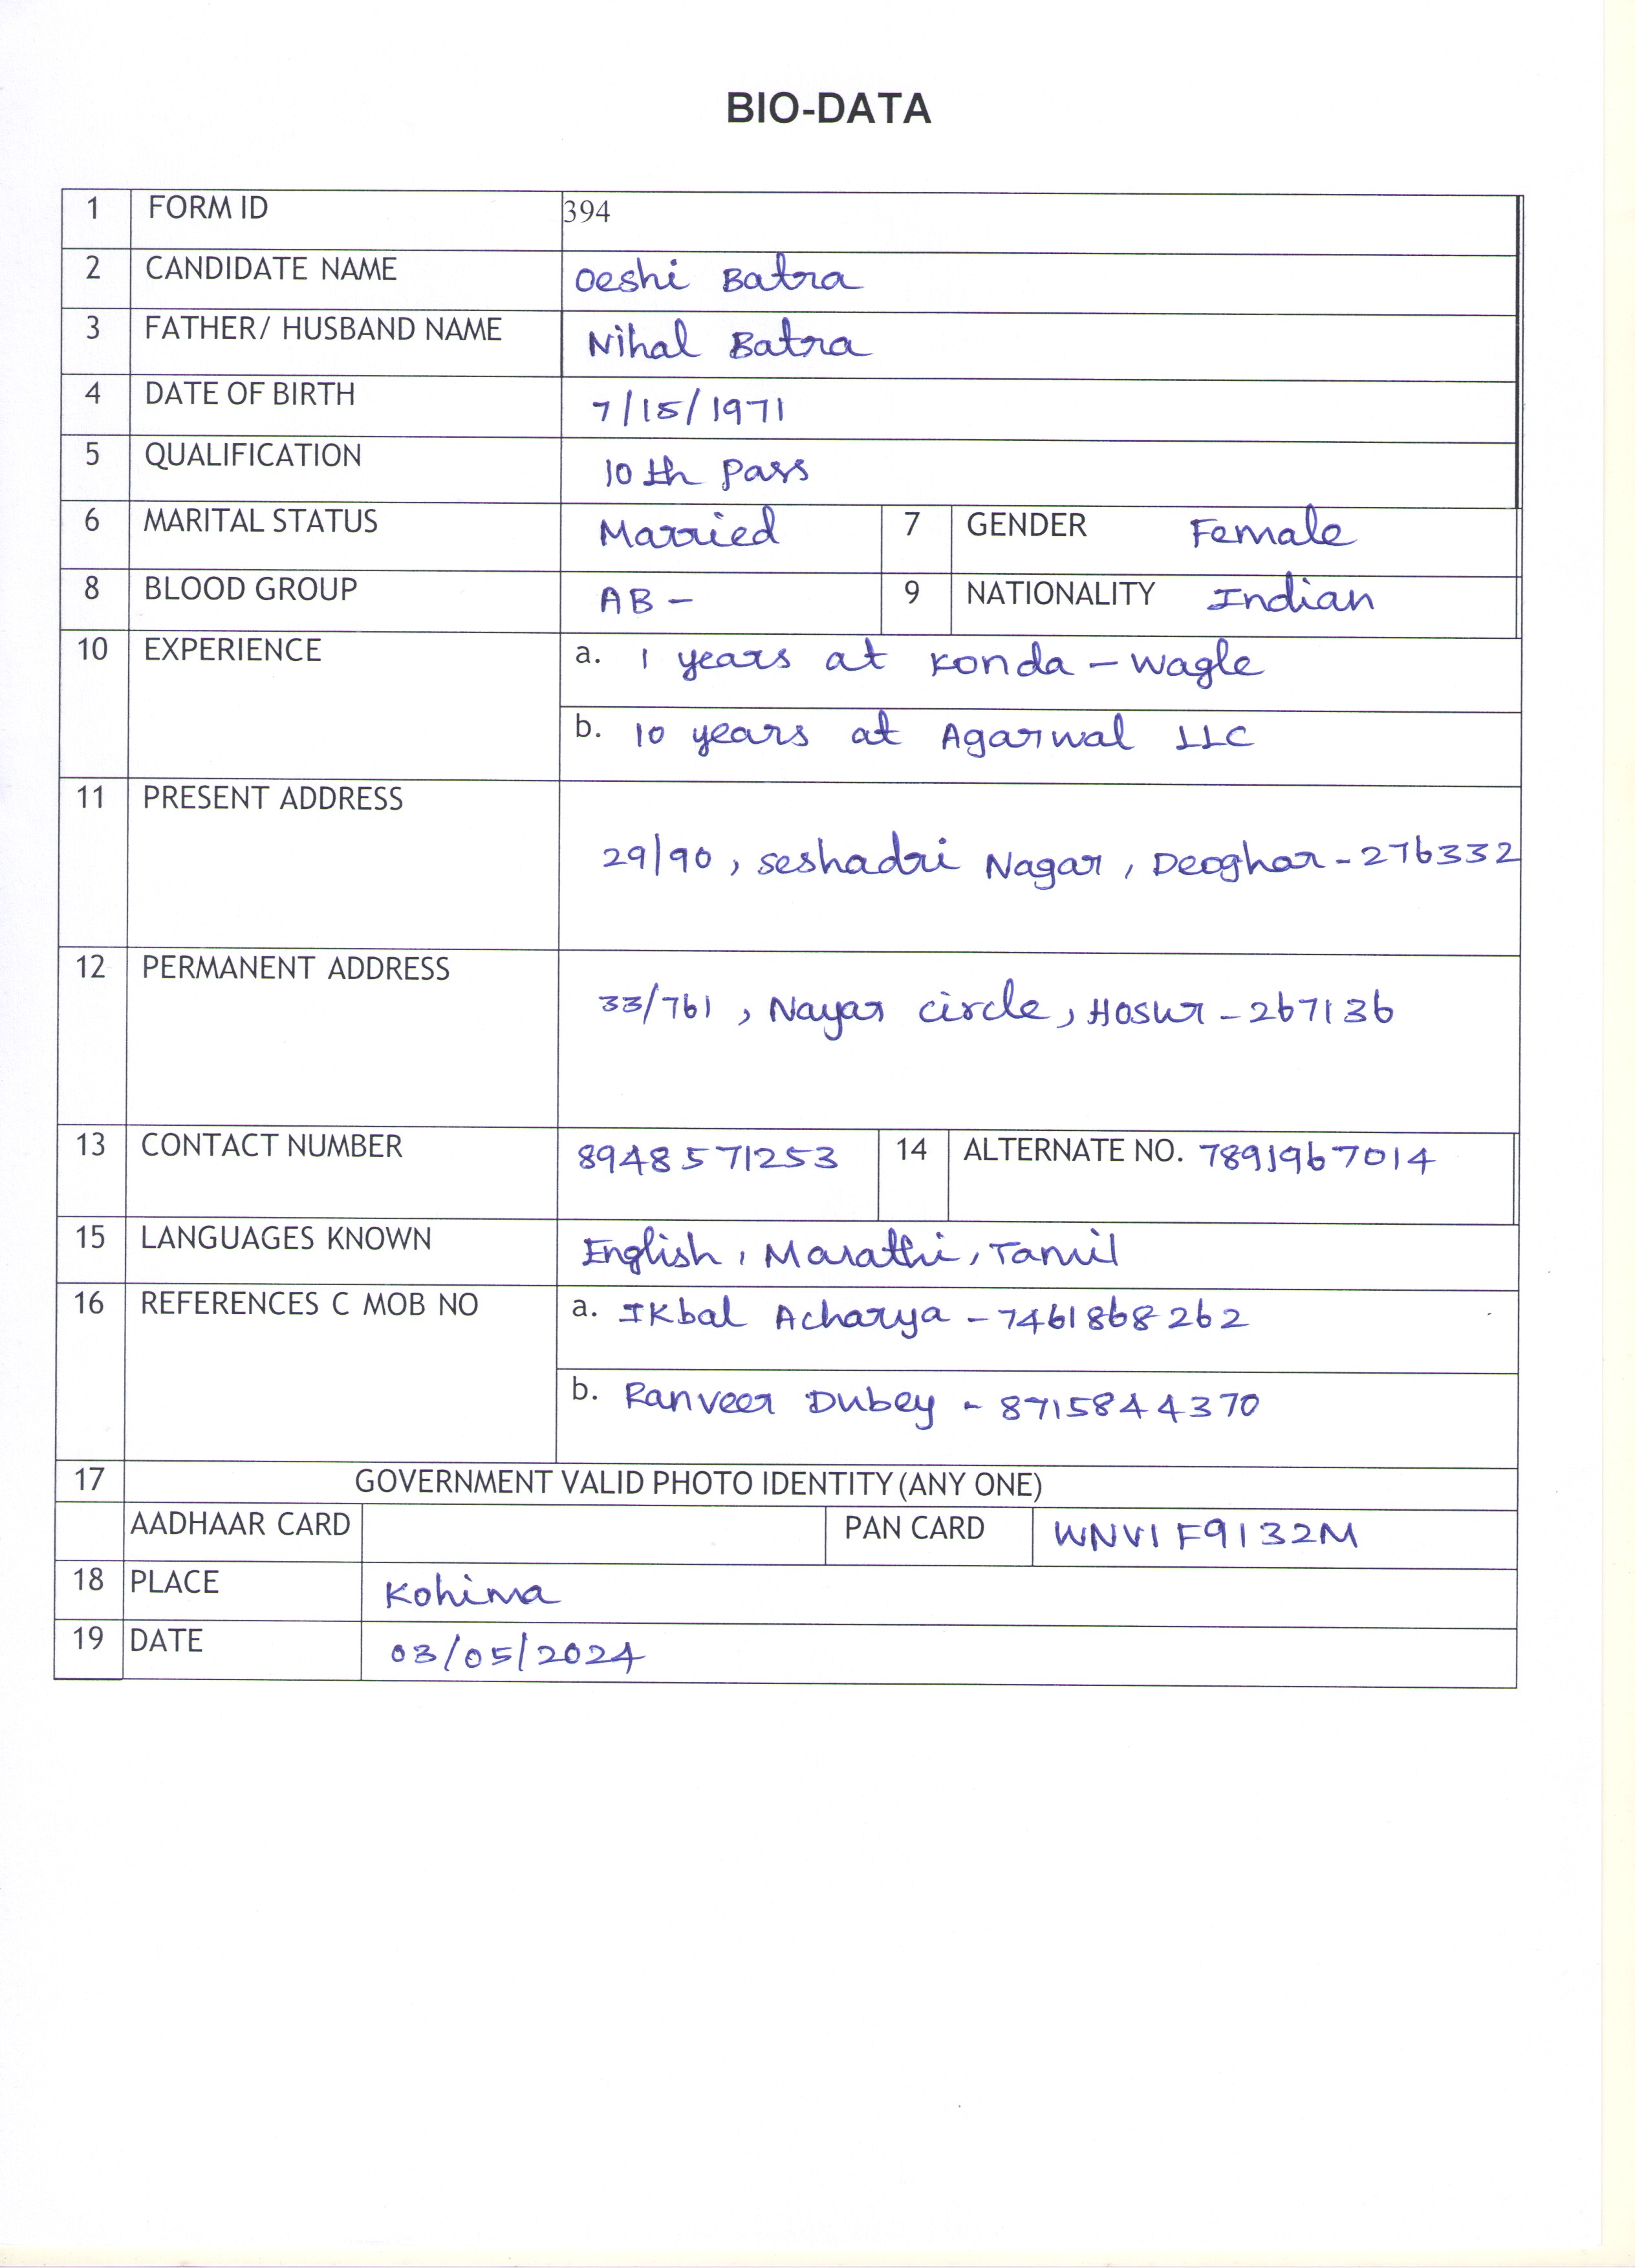 BIO-DATA
1 FORM ID 394
2 CANDIDATE NAME Oeshi Batra
3 FATHER/ HUSBAND NAME Nihal Batra
4 DATE OF BIRTH 7/15/1971
5 QUALIFICATION 10th pass
6 MARITAL STATUS Married 7 GENDER Female
8 BLOOD GROUP AB - 9 NATIONALITY Indian
10 EXPERIENCE a. 1 years at Konda - Wagle
b. 10 years at Agarwal LLC
11 PRESENT ADDRESS
29/90, Seshadri Nagar, Deoghar - 276332
12 PERMANENT ADDRESS
33/761, Nayar circle, Hosur - 267136
13 CONTACT NUMBER 8948571253 14 ALTERNATE NO. 7891967014
15 LANGUAGES KNOWN English, Marathi, Tamil
16 REFERENCES C MOB NO a. Ikbal Acharya - 7461868262
b. Ranveer Dubey - 8715844370
17 GOVERNMENT VALID PHOTO IDENTITY (ANY ONE)
AADHAAR CARD PAN CARD WNVIF9132M
18 PLACE Kohima
19 DATE 03/05/2024